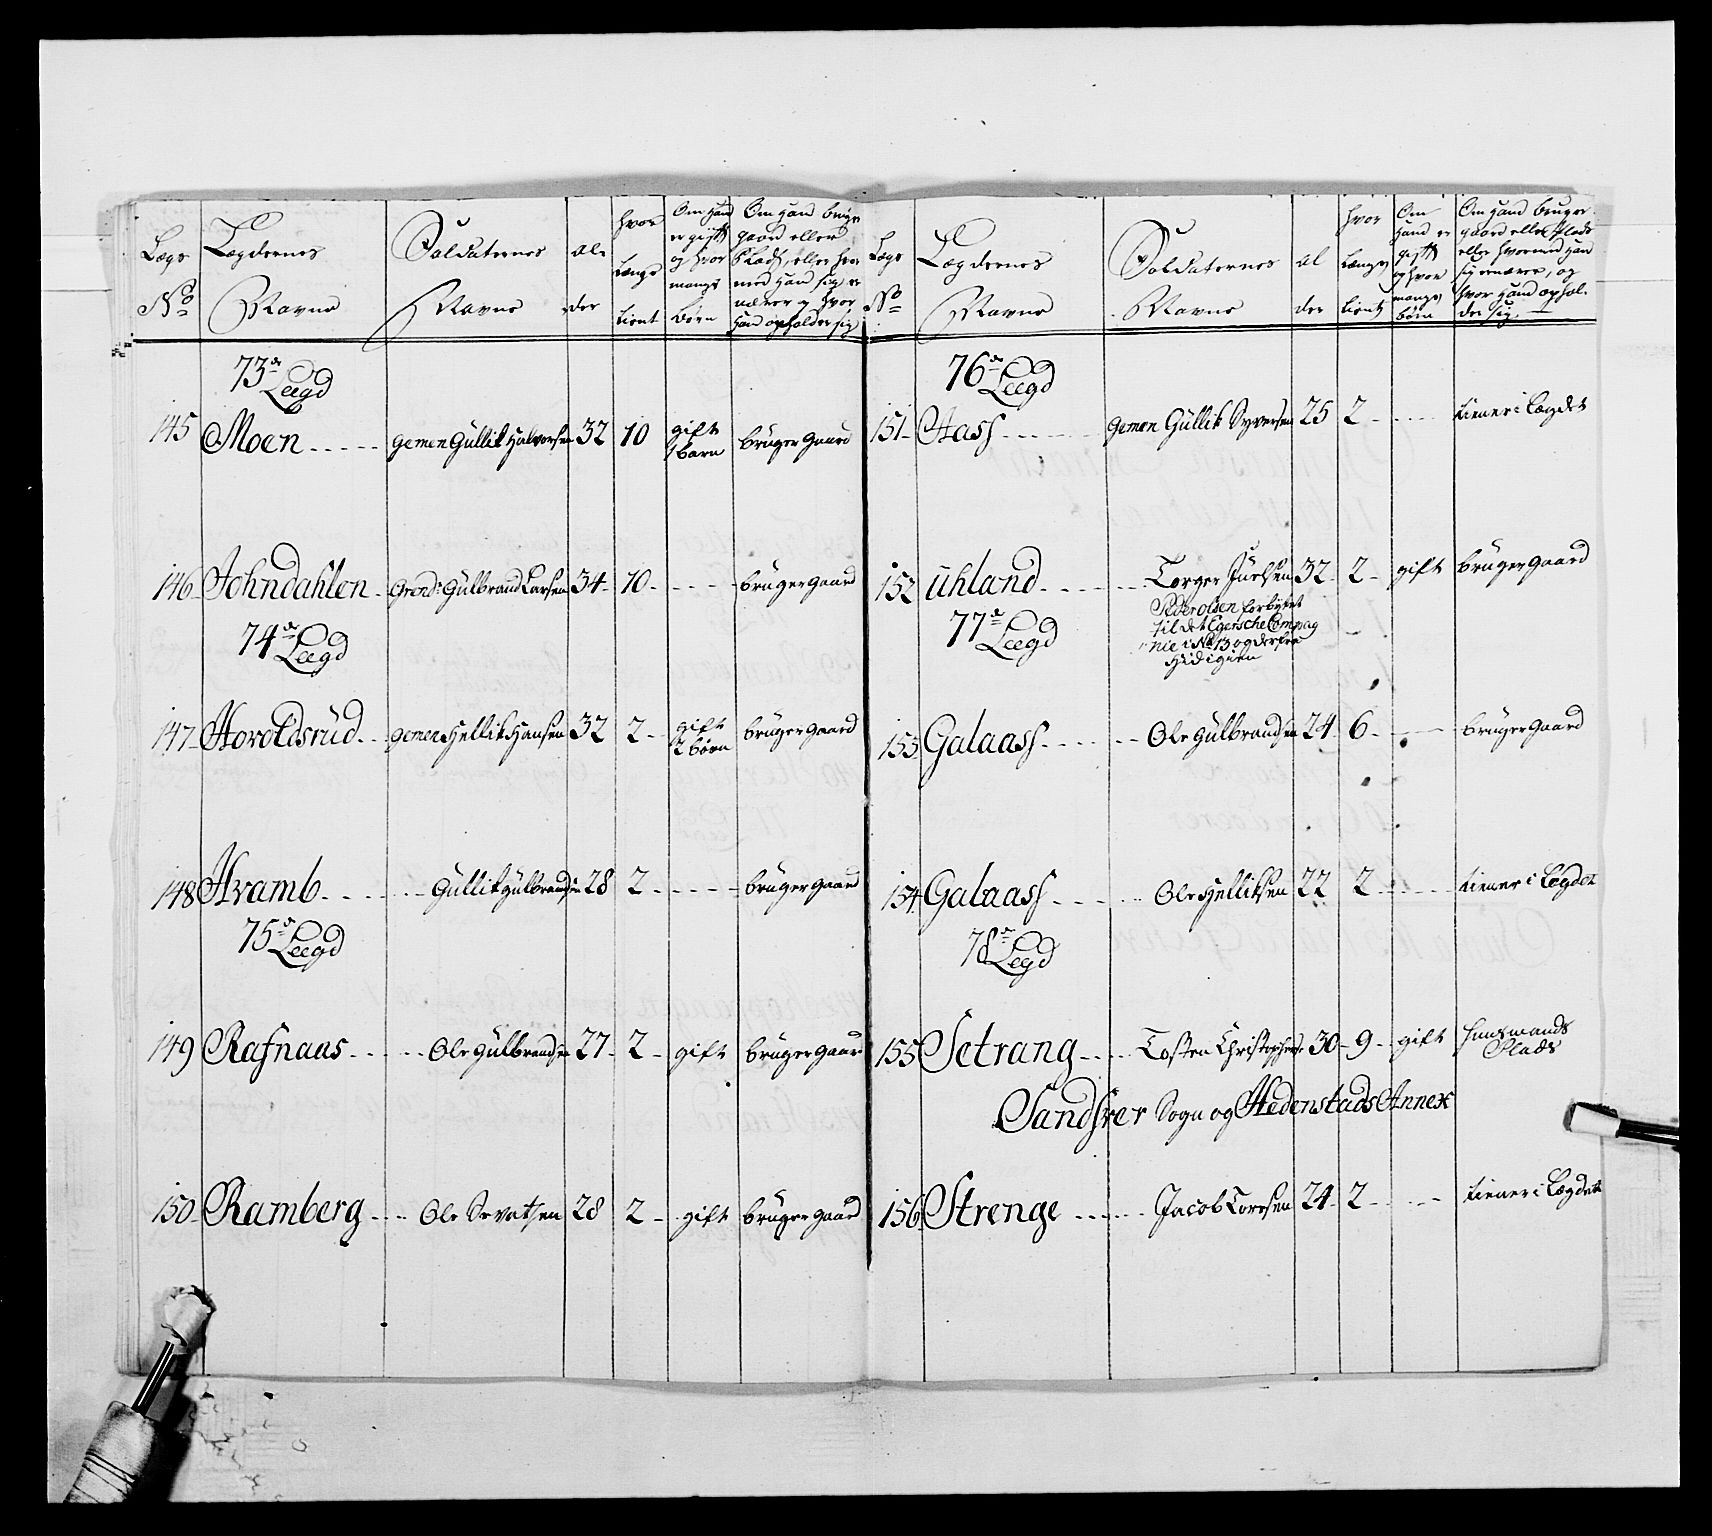 Lægs No Lægdernes Navne Soldaternes Navne Alder hvor Længe tient Om hand er gift og hvor mange börn Om hand brüger gaard eller Plads, eller hvormed hand sig ernærer og hvor hand opholder sig
73de Leegd
145 Moen gemen Güllik Halvorsen 32 10 gift 1 barn brüger gaard
146 Johndahlen Grend: Gülbrand Larsen 34 10 brüger gaard
74de Leegd
147 Horoldsrüd gemen Hellik Hansen 32 2 gift 2 börn brüger gaard
148 Hvamb Güllik Gülbrandsen 28 2 brüger gaard
75de Leegd
149 Rafnaas Ole Gülbrandsen 27 2 gift brüger gaard
150 Ramberg Ole 28 2 gift brüger gaard
Lægs No Lægdernes Navne Soldaternes Navne Alder hvor Længe tient Om hand er gift og hvor mange börn Om hand brüger gaard eller Plads eller hvormed hand sig ernærer, og hvor hand opholder sig.
76de Leegd
151 Aass gemen Güllik Syversen 25 2 tiener i Lægdet
152 Uhland Torger Jüelsen 32 2 gift brüger gaard
77de Leegd
Peder Olsen forbyttet
til det Egersche Compag
nie i No 13 og derfra
hid igien
153 Galaass Ole Gülbrandsen 24 6 brüger gaard
154 Galaass Ole Helliksen 22 2 tiener i Legdet
78de Leegd
155 Setrang Tosten Christophers: 30 9 gift Huusmands Plads
Sandsver Sogn og Hedenstads Annex
156 Strenge Jacob Toresen 24 2 tiener i Lægdet